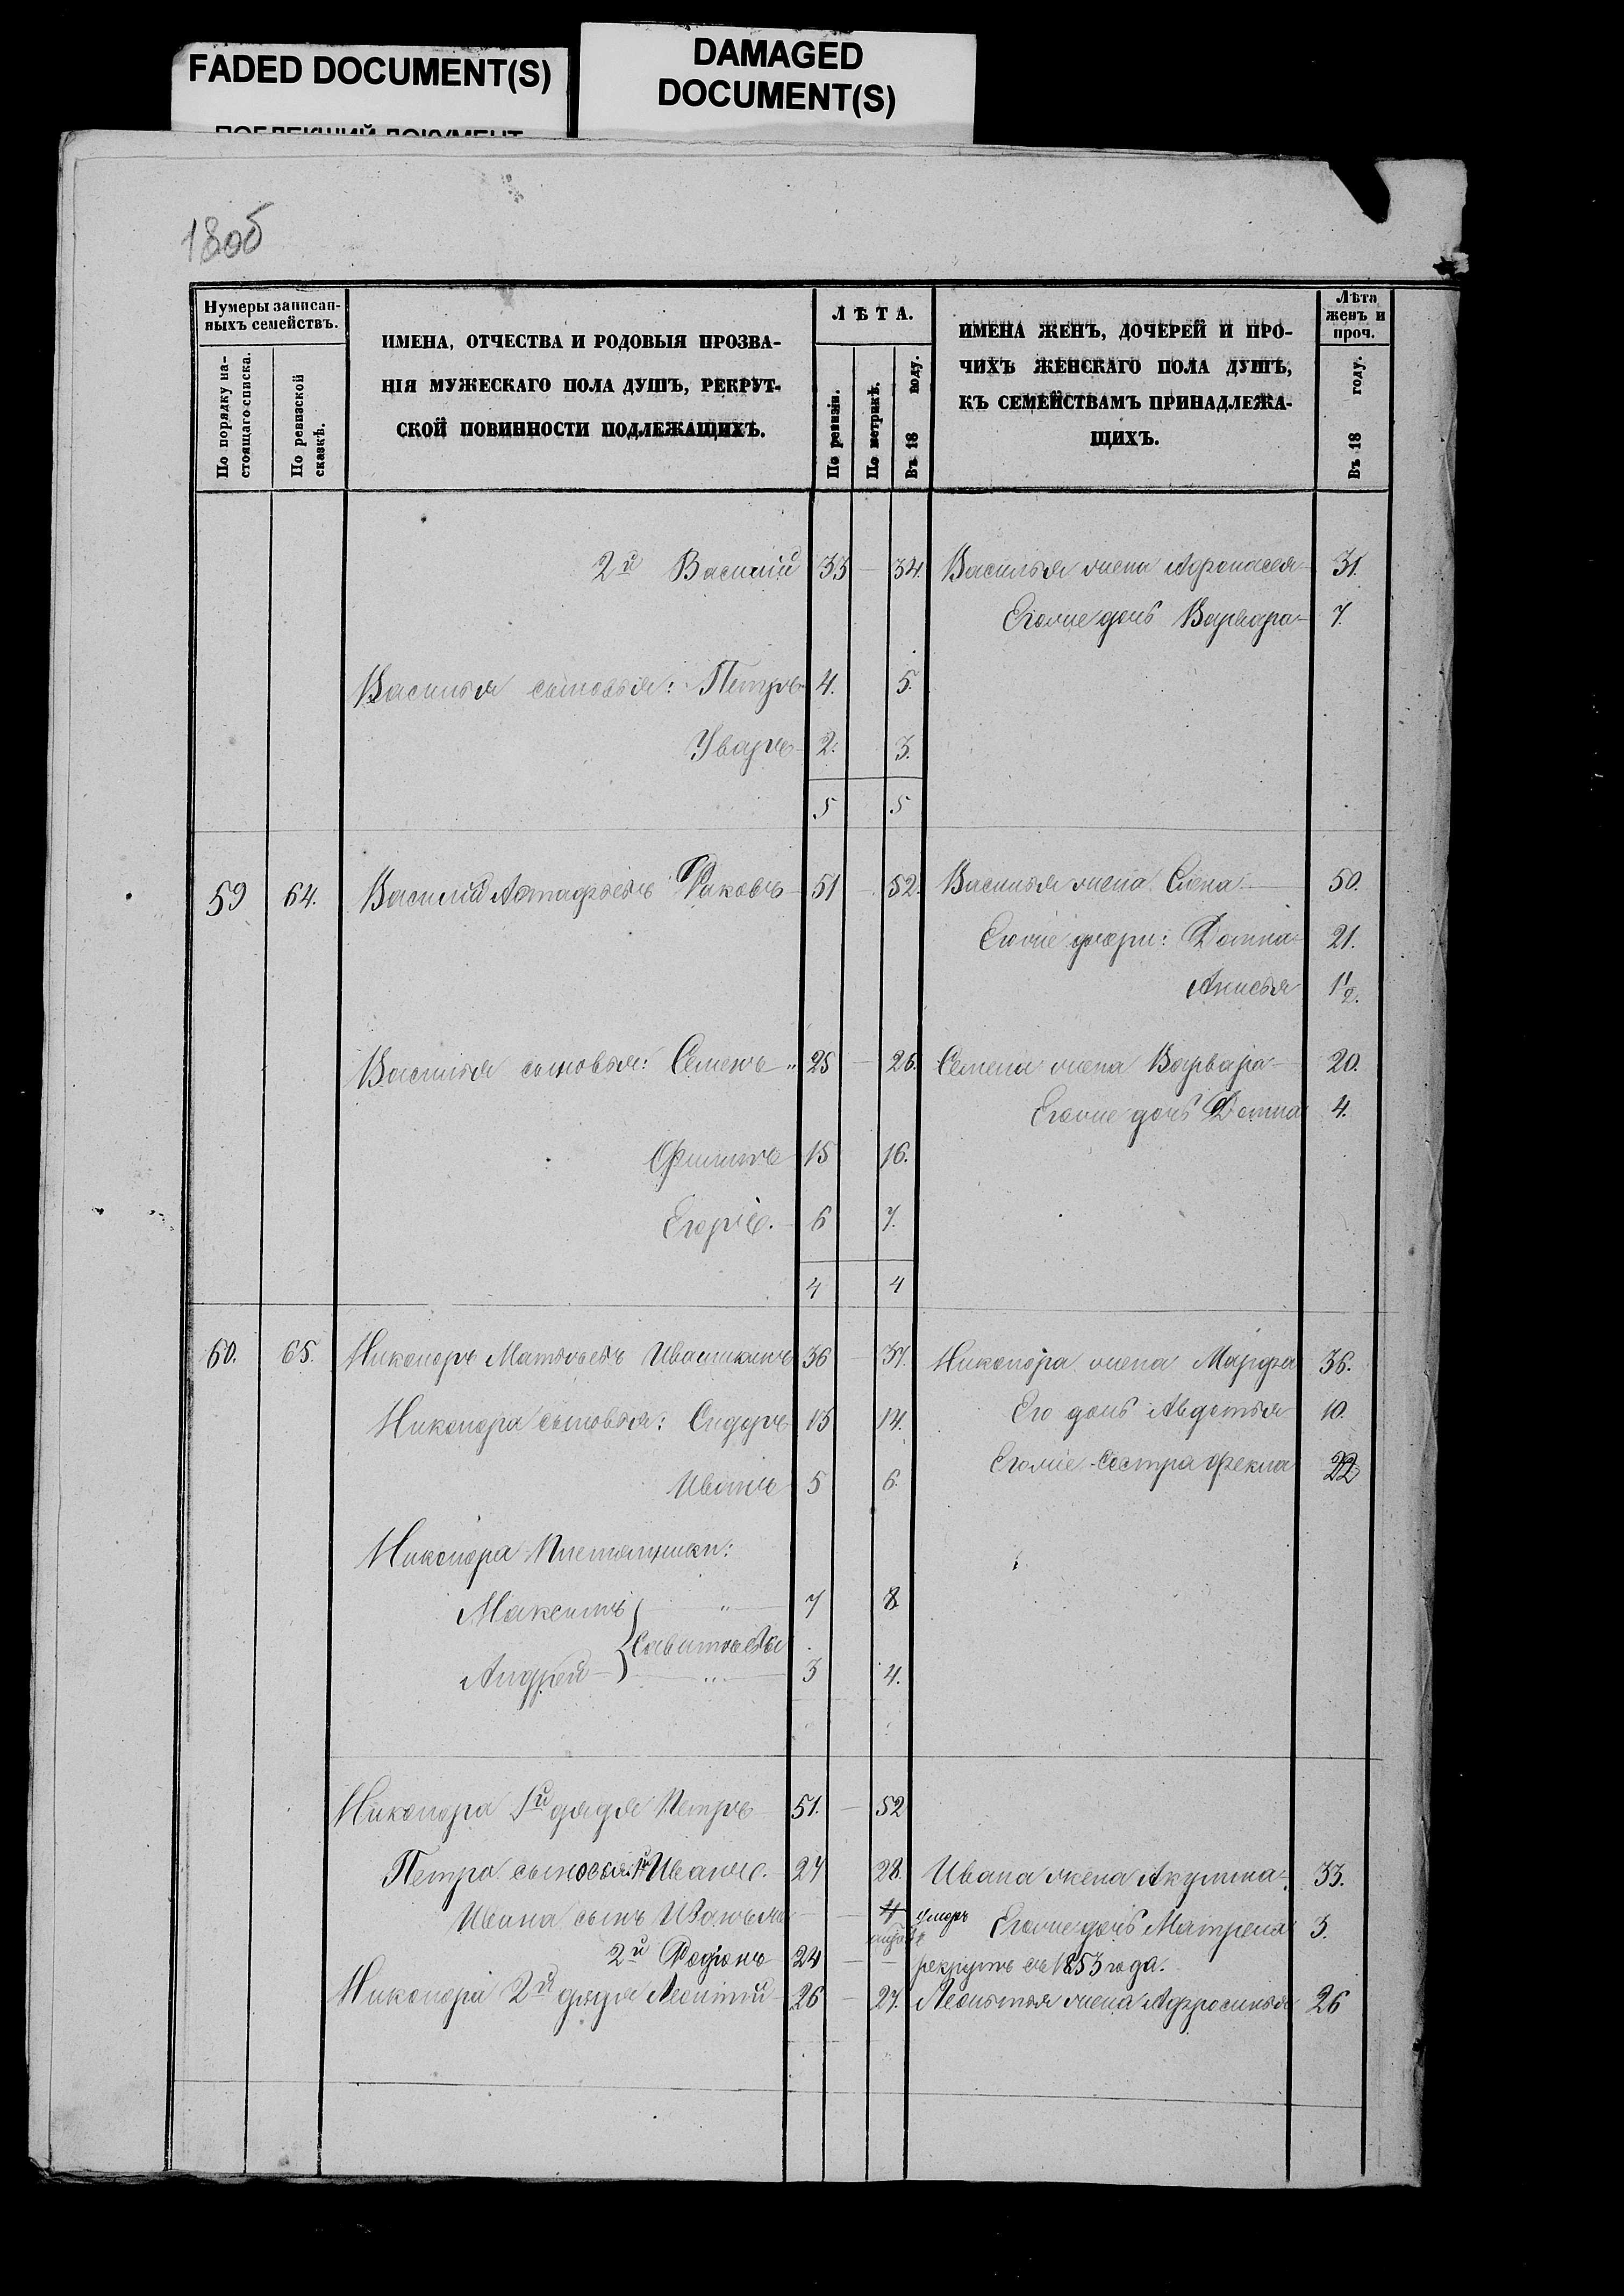 FADED DOCUMENT(S)
DAMAGED
DOCUMENT(S)
ПОБЛЕКШИЙ ДОКУМЕНТ
180об
Нумеры записан-
ныхъ семействъ.
По порядку на-
стоящаго списка.
По ревизской
сказкѣ.
ИМЕНА, ОТЧЕСТВА И РОДОВЫЯ ПРОЗВА-
НІЯ МУЖЕСКАГО ПОЛА ДУШЪ, РЕКРУТ-
СКОЙ ПОВИННОСТИ ПОДЛЕЖАЩИХЪ.
ЛѢТА.
По ревизіи.
По метрикѣ.
Въ 18 году.
ИМЕНА ЖЕНЪ, ДОЧЕРЕЙ И ПРО-
ЧИХЪ ЖЕНСКАГО ПОЛА ДУШЪ,
КЪ СЕМЕЙСТВАМЪ ПРИНАДЛЕЖА-
ЩИХЪ.
Лѣта
женъ и
проч.
Въ 18 году.
2й Василий 33 — 34. Васильѧ жена Афонасея 31.
Егоже дочь Варвара 7.
Василья сыновья: Петръ 4. 5.
Уваръ 2. 3.
5 5
59 64. Василій Астафьевъ Раковъ 51 — 52. Василья жена Елена 50.
Егоже дочери: Домна 21.
Анисья 1½.
Василья сыновья: Семенъ 25 — 26. Семена жена Варвара 20.
Егоже дочь Домна 4.
Филипъ 15 16.
Егоръ. 6 7.
4 4
60. 65. Никоноръ Матвѣевъ Ивашкинъ 36 — 37. Никонора жена Марфа 36.
Никонора сыновья: Сидоръ 13 14. Его дочь Авдотья 10.
Иванъ 5 6. Егоже сестра Фекла 22
Никонора Племянники:
Максимъ 7 8
Савитьевы
Андрей 3 4.
Никонора 1й дядя Петръ 51. — 52
Петра сыновья: 1й Иванъ. 27 28. Ивана жена Акулина 33.
Ивана сынъ Иванъ — 4 умеръ Егоже дочь Матрена 3.
2й Родіонъ 24 — — рекрутъ съ 1853 года.
Никонора 2й дядя Леонтій 26 — 27. Леонтья жена Афросинья 26